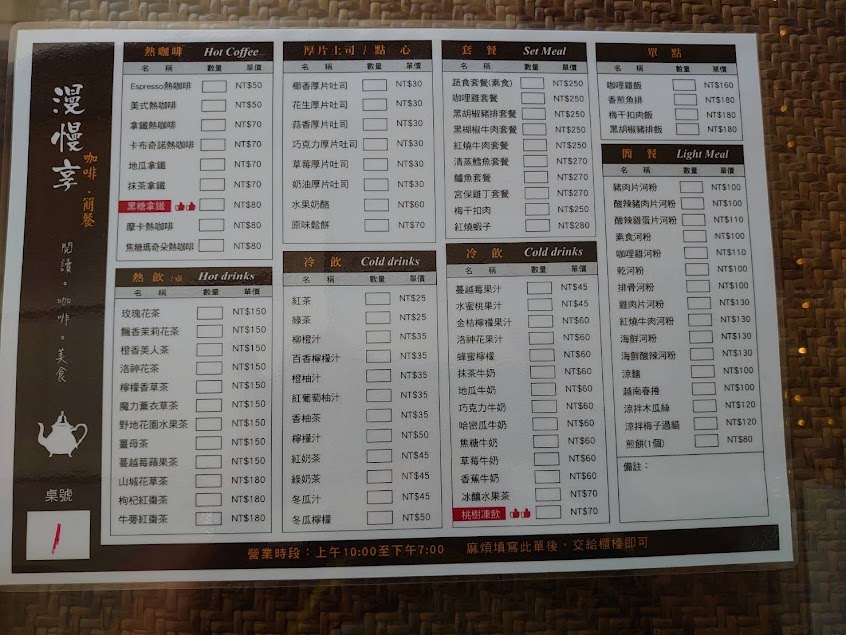 漫慢享
咖啡．簡餐
閱讀。咖啡。美食
桌號
1
熱咖啡 Hot Coffee
名 稱 數量 單價
Espresso熱咖啡 NT$50
美式熱咖啡 NT$50
拿鐵熱咖啡 NT$70
卡布奇諾熱咖啡 NT$70
地瓜拿鐵 NT$70
抹茶拿鐵 NT$70
黑糖拿鐵 NT$80
摩卡熱咖啡 NT$80
焦糖瑪奇朵熱咖啡 NT$80
熱飲/壺 Hot drinks
名 稱 數量 單價
玫瑰花茶 NT$150
飄香茉莉花茶 NT$150
橙香美人茶 NT$150
洛神花茶 NT$150
檸檬香草茶 NT$150
魔力薰衣草茶 NT$150
野地花園水果茶 NT$150
薑母茶 NT$150
蔓越莓蘋果茶 NT$150
山城花草茶 NT$180
枸杞紅棗茶 NT$180
牛蒡紅棗茶 NT$180
厚片土司 / 點心
名 稱 數量 單價
椰香厚片吐司 NT$30
花生厚片吐司 NT$30
蒜香厚片吐司 NT$30
巧克力厚片吐司 NT$30
草莓厚片吐司 NT$30
奶油厚片吐司 NT$30
水果奶酪 NT$60
原味鬆餅 NT$70
冷飲 Cold drinks
名 稱 數量 單價
紅茶 NT$25
綠茶 NT$25
柳橙汁 NT$35
百香檸檬汁 NT$35
橙柚汁 NT$35
紅葡萄柚汁 NT$35
香柚茶 NT$35
檸檬汁 NT$50
紅奶茶 NT$45
綠奶茶 NT$45
冬瓜汁 NT$45
冬瓜檸檬 NT$50
套餐 Set Meal
名 稱 數量 單價
蔬食套餐(素食) NT$250
咖哩雞套餐 NT$250
黑胡椒豬排套餐 NT$250
黑椒牛肉套餐 NT$250
紅燒牛肉套餐 NT$250
清蒸鱈魚套餐 NT$270
鱸魚套餐 NT$270
宮保雞丁套餐 NT$270
梅干扣肉 NT$250
紅燒蝦子 NT$280
冷飲 Cold drinks
名 稱 數量 單價
蔓越莓果汁 NT$45
水蜜桃果汁 NT$45
金桔檸檬果汁 NT$60
洛神花果汁 NT$60
蜂蜜檸檬 NT$60
抹茶牛奶 NT$60
地瓜牛奶 NT$60
巧克力牛奶 NT$60
哈密瓜牛奶 NT$60
焦糖牛奶 NT$60
草莓牛奶 NT$60
香蕉牛奶 NT$60
冰釀水果茶 NT$70
桃樹凍飲 NT$70
單點
名 稱 數量 單價
咖哩雞飯 NT$160
香煎魚排 NT$180
梅干扣肉飯 NT$180
黑胡椒豬排飯 NT$180
簡餐 Light Meal
名 稱 數量 單價
豬肉片河粉 NT$100
酸辣豬肉片河粉 NT$100
酸辣雞蛋片河粉 NT$110
素食河粉 NT$100
咖哩雞河粉 NT$110
乾河粉 NT$100
排骨河粉 NT$100
雞肉片河粉 NT$130
紅燒牛肉河粉 NT$130
海鮮河粉 NT$130
海鮮酸辣河粉 NT$130
涼麵 NT$100
越南春捲 NT$100
涼拌木瓜絲 NT$120
涼拌梅子過貓 NT$120
煎餅(1個) NT$80
備註：
營業時段：上午10:00至下午7:00 麻煩填寫此單後，交給櫃檯即可